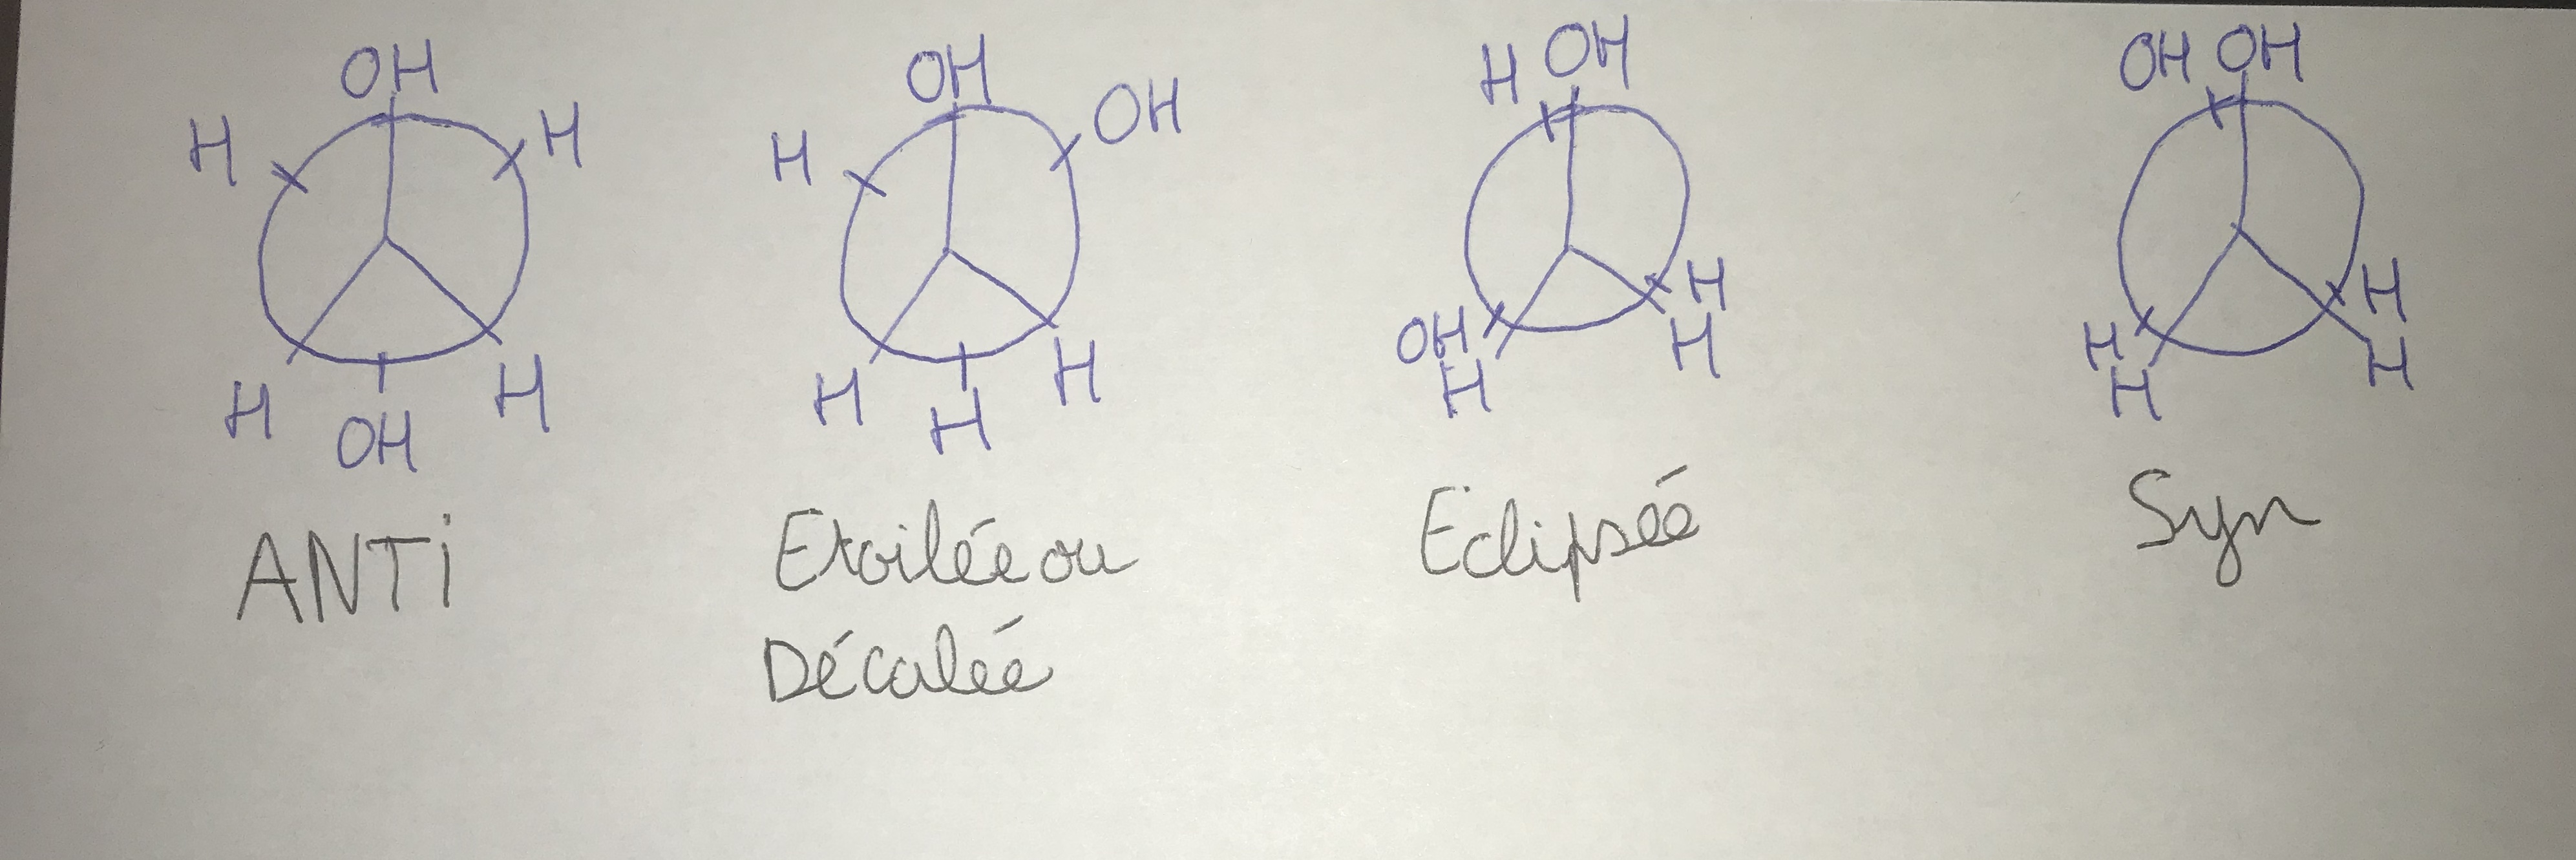 OH
H H
H H
OH
ANTi
OH
H OH
H H
H
Etoilée ou
Décalée
H OH
H
OH H
H
Eclipsée
OH OH
H
H H
H
Syn